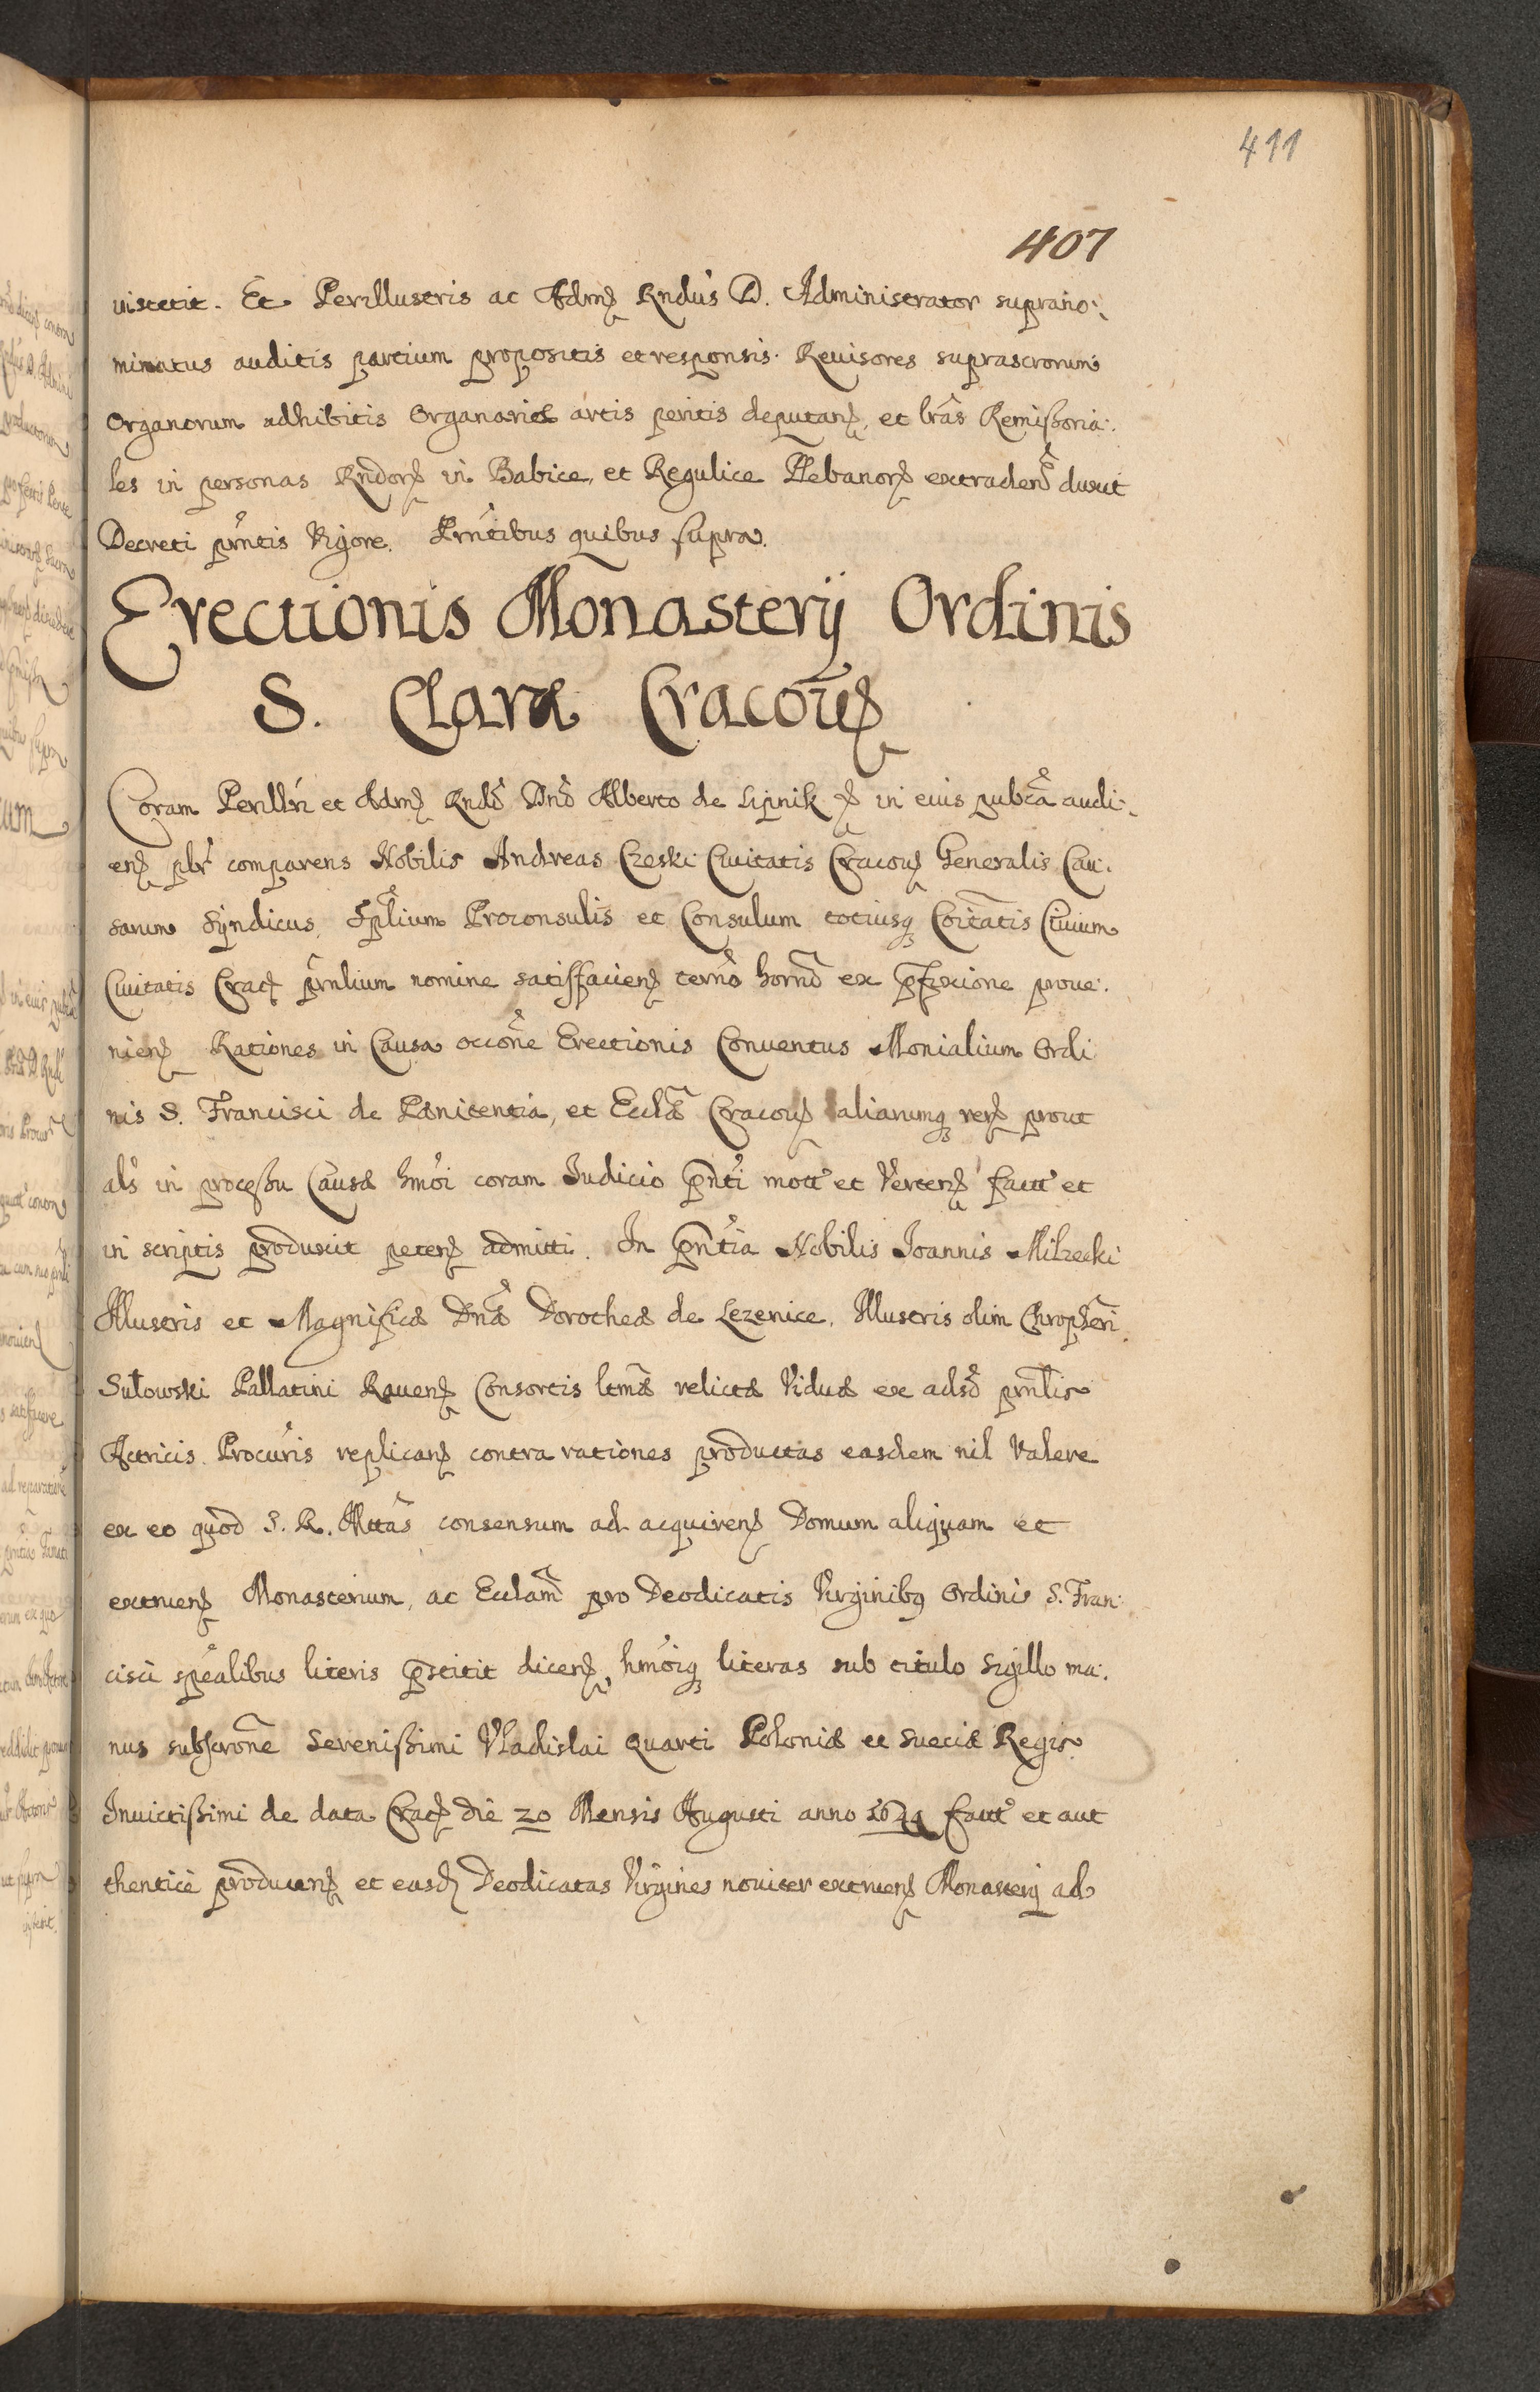 411
407
uistetit. Et Perillustris ac Admꝭ Rndus D. Administrator suprano:
minatus auditis partium propositis et responsis. Reuisores suprascrorum
Organorum adhibitis Organariæ artis peritis deputanꝭ, et lras Remißoria:
les in personas Rndorꝭ in Babice, et Regulice Plebanorꝭ extradendꝭ duxit
Decreti prntis Vigore. Prntibus quibus supra.
Erectionis Monasterij Ordinis
S. Claræ Cracouꝭ
Coram Perillri et Admꝭ Rndo Dno Alberto de Lipnik ꝭ in eius pubca audi:
enꝭ plr comparens Nobilis Andreas Czeski Ciuitatis Cracouꝭ Generalis Cau:
sarum Syndicus, Splium Proconsulis et Consulum totiusqꝫ Coitatis Ciuium
Ciuitatis Cracꝭ prnlium nomine satisfacienꝭ termo horno ex pfixione proue:
nienꝭ Rationes in Causa occone Erectionis Conuentus Monialium Ordi
nis S. Francisci de Pænitentia, et Ecclæ Cracouꝭ aliarumqꝫ rerꝭ prout
als in proceßu Causæ hmoi coram Iudicio pnti mott et Vertenꝭ factt et
in scriptis produxit petenꝭ admitti. In pntia Nobilis Ioannis Milzecki
Illustris et Magnificæ Dnæ Dorotheæ de Lezenice, Illustris olim Chropheri
Sułowski Pallatini Rauenꝭ Consortis ltmæ relictæ Viduæ ex adso prnlis
Actricis Procuris replicanꝭ contra rationes productas easdem nil Valere
ex eo quod S. R. Mttas consensum ad acquirenꝭ Domum aliquam et
extruenꝭ Monasterium, ac Ecclam pro Deodicatis Virginibꝫ Ordinis S. Fran:
cisci spealibus literis pstitit dicenꝭ, hmoiqꝫ literas sub titulo sigillo ma:
nus subscrone Serenißimi Vladislai Quarti Poloniæ et Sueciæ Regis
Inuictißimi de data Cracꝭ die 20 Mensis Augusti anno 1644 factt et aut
thentice producenꝭ et easdꝭ Deodicatas Virgines nouiter extruenꝭ Monasterij ad